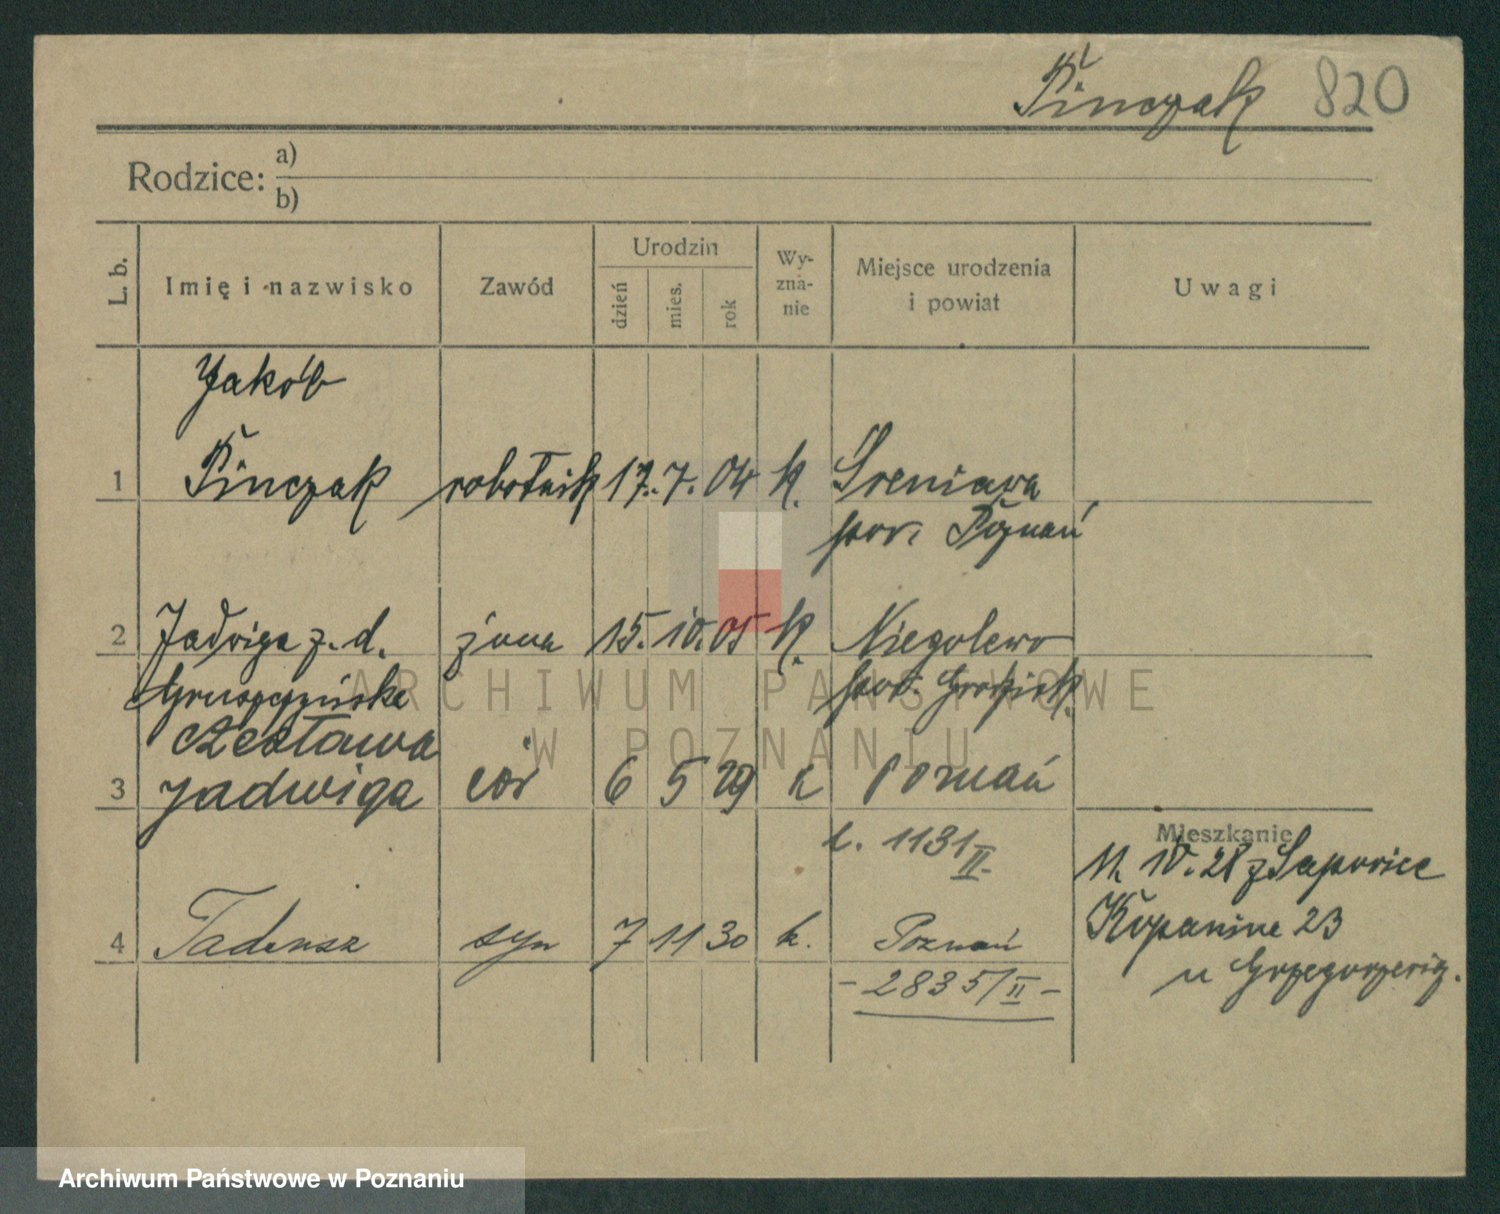 Pinczak 820
Rodzice: a)
b)
L. b. Imię i nazwisko Zawód Urodzin dzień mies. rok Wy-zna-nie Miejsce urodzenia i powiat Uwagi
Jakób
1 Pinczak robotnik 17. 7. 04 k. Sreniawa
pow. Poznań
2 Jadwiga z. d. żona 15. 10. 05 k. Niegolewo
Gruszczyńska pow. Grodzisk.
Czesława
3 Jadwiga cór 6 5 29 k Poznań
Mieszkanie
l. 1131/II.
11. 10. 28 z
Kopanina 23
4 Tadeusz syn 7 11 30 k. Poznań
u Grzegorzewicz.
- 2835/II -
ARCHIWUM PAŃSTWOWE
W POZNANIU
Archiwum Państwowe w Poznaniu